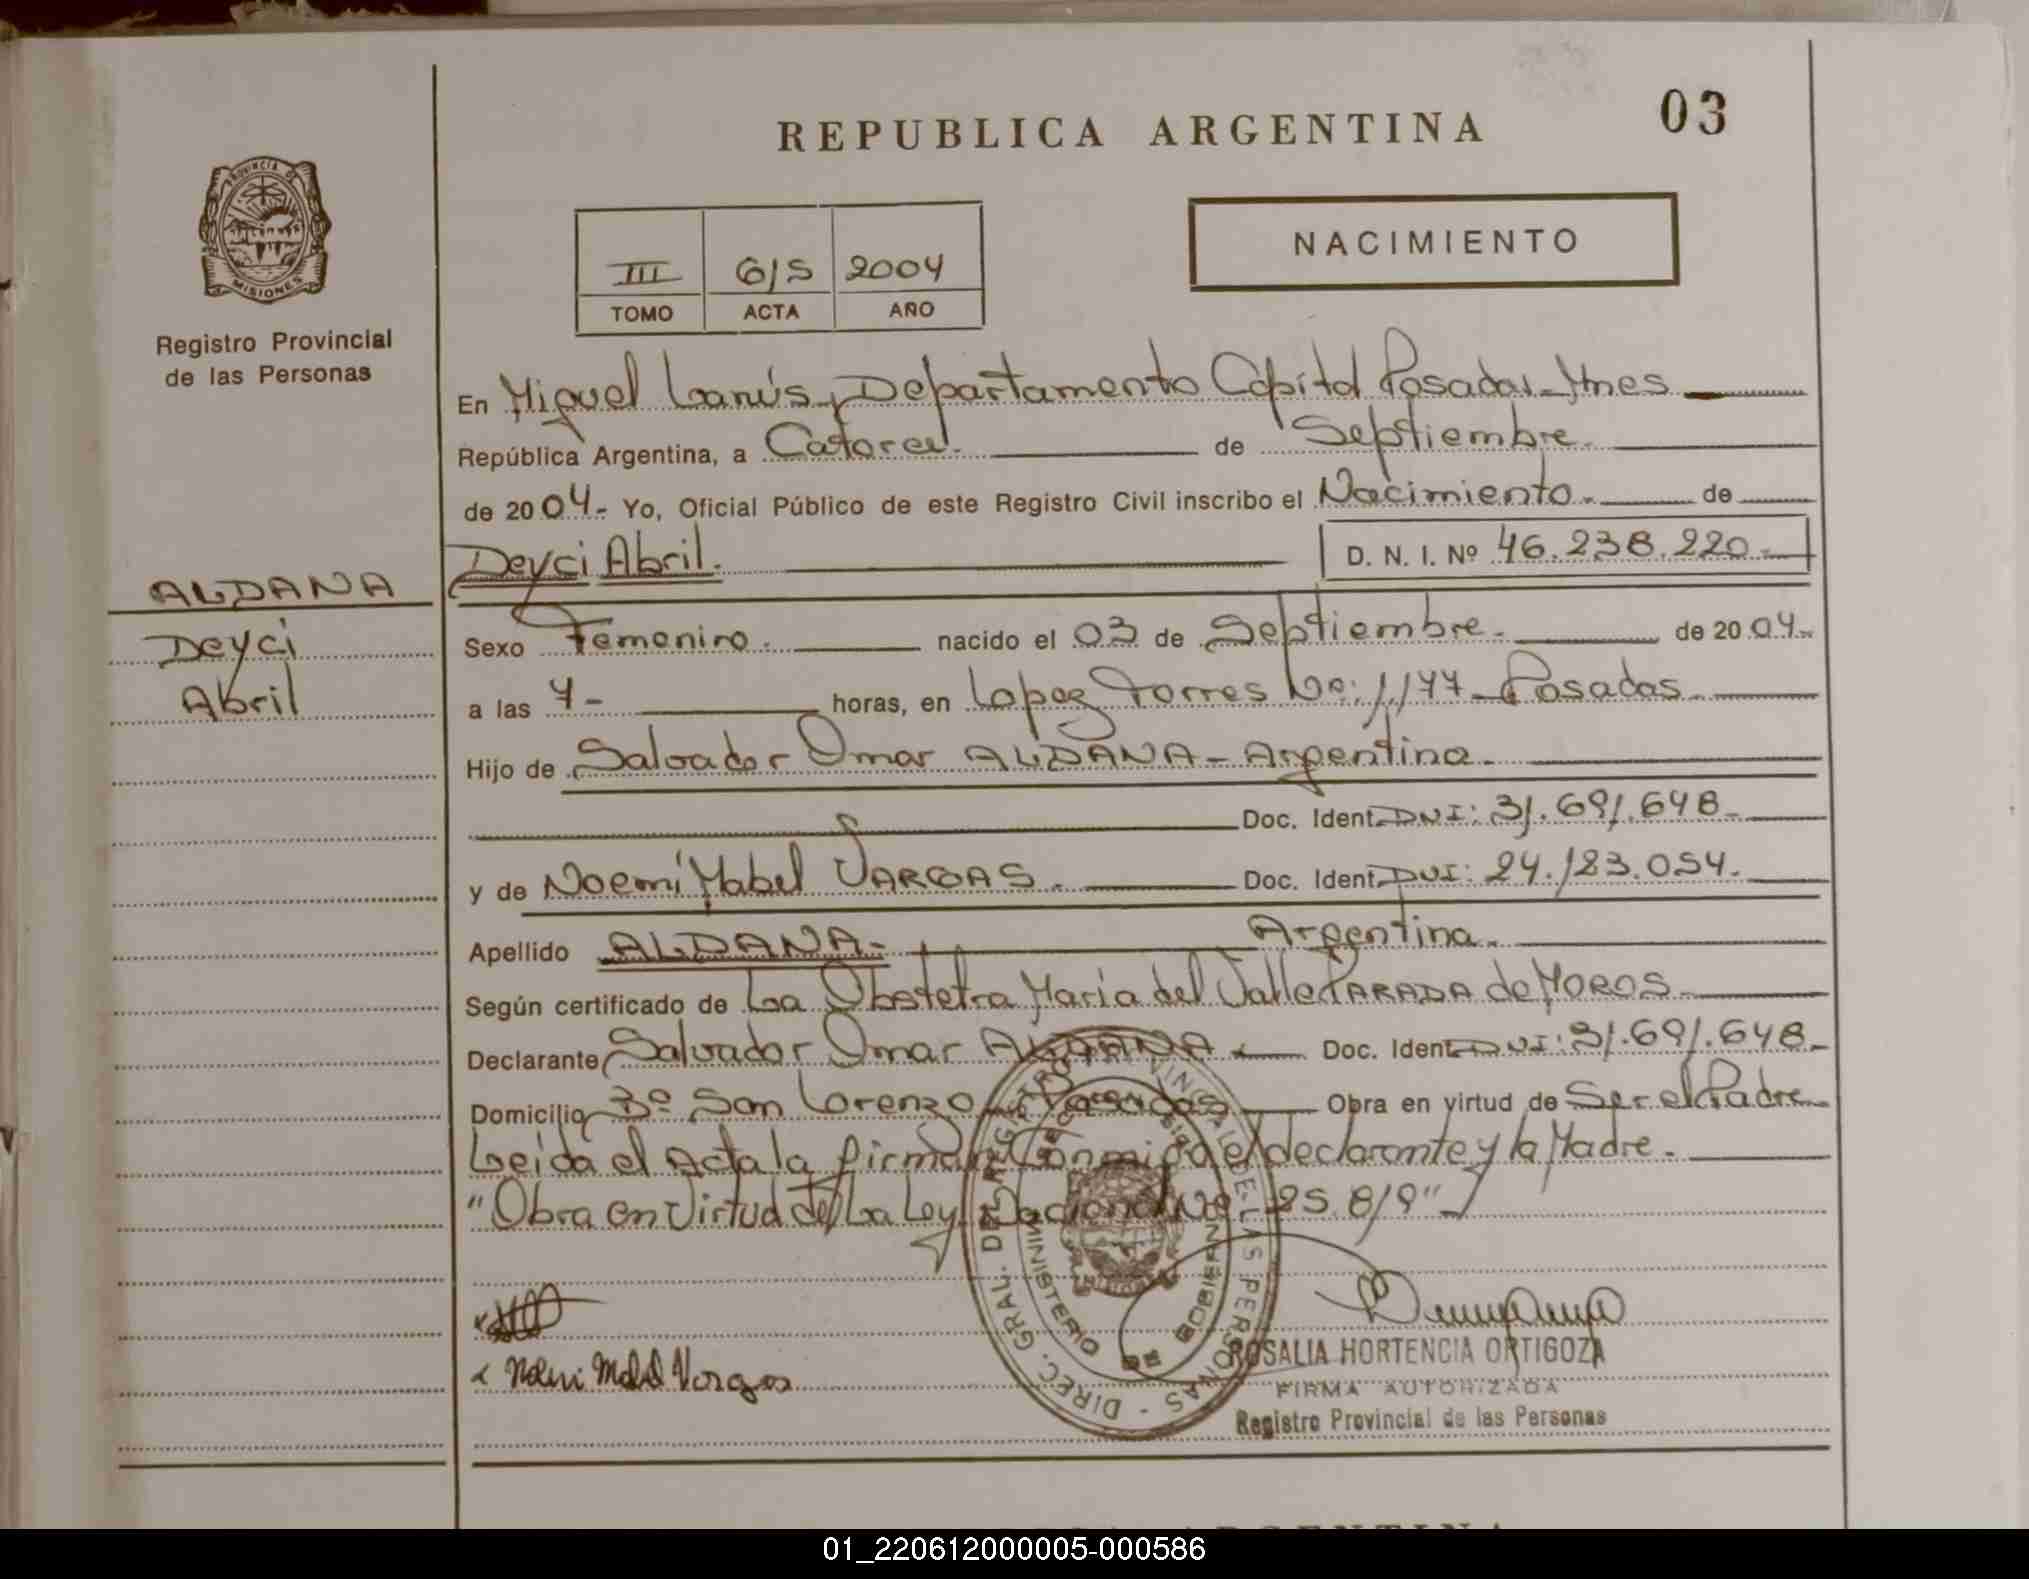 REPUBLICA ARGENTINA
03
PROVINCIA DE MISIONES
Registro Provincial
de las Personas
NACIMIENTO
III 615 2004
TOMO ACTA AÑO
En Miguel Lanús, Departamento Capital Posadas - Mnes
República Argentina, a Catorce. de Septiembre.
de 2004.- Yo, Oficial Público de este Registro Civil inscribo el Nacimiento. de
Deyci Abril. D. N. I. Nº 46.238.220.-
ALDANA
Deyci
Abril
Sexo Femenino. nacido el 03 de Septiembre. de 2004.
a las 7- horas, en Lopez Torres Nº: 1177 - Posadas.
Hijo de Salvador Omar ALDANA - Argentina.
Doc. Ident. DNI: 31.691.648.-
y de Noemi Mabel VARGAS. Doc. Ident. DNI: 24.123.054.
Apellido ALDANA.- Argentina.
Según certificado de La Obstetra Maria del Valle PARADA de MOROS.
Declarante Salvador Omar ALDANA Doc. Ident. DNI: 31.691.648.-
Domicilio Bº San Lorenzo - Posadas Obra en virtud de Ser el Padre.
Leida el Acta la firman Conmigo el declarante y la Madre.
"Obra en Virtud de La Ley Nacional Nº 25.819"
DIREC. GRAL. DE REGISTRO PROVINCIAL DE LAS PERSONAS
MINISTERIO DE GOBIERNO
Noemi Mabel Vargas
ROSALIA HORTENCIA ORTIGOZA
FIRMA AUTORIZADA
Registro Provincial de las Personas
01_220612000005-000586